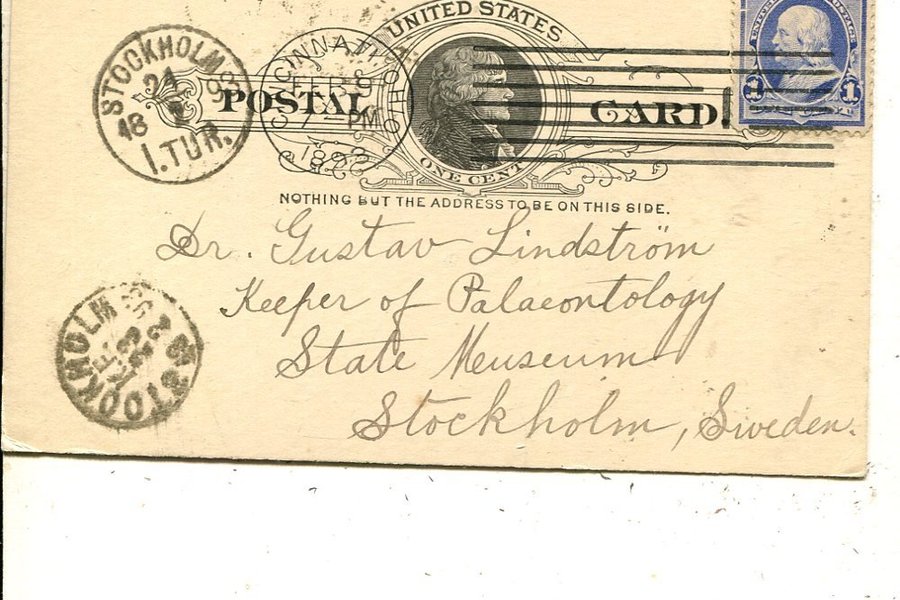 UNITED STATES
POSTAL CARD.
ONE CENT
NOTHING BUT THE ADDRESS TO BE ON THIS SIDE.
CINCINNATI OHIO
FEB 8
7 PM
1893
STOCKHOLM
18 93
1.TUR.
1 1
Dr. Gustav Lindström
Keeper of Palaeontology
State Meuseum
Stockholm, Sweden.
STOCKHOLM